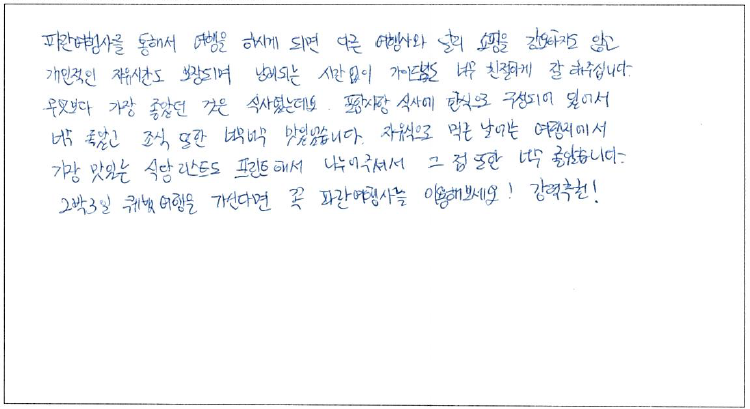 파란여행사를 통해서 여행을 하시게 되면 다른 여행사와 달리 쇼핑을 강요하지도 않고
개인적인 자유시간도 보장되며 낭비되는 시간없이 가이드분도 너무 친절하게 잘 해주십니다.
무엇보다 가장 좋았던 것은 식사였는데요. 포함사항 식사에 한식으로 구성되어 있어서
너무 좋았고 조식 또한 너무너무 맛있었습니다. 자유식으로 먹는 날에는 여행지에서
가장 맛있는 식당 리스트도 프린트해서 나누어주셔서 그 점 또한 너무 좋았습니다.
2박3일 퀘벡여행을 가신다면 꼭 파란여행사를 이용해보세요! 강력추천!